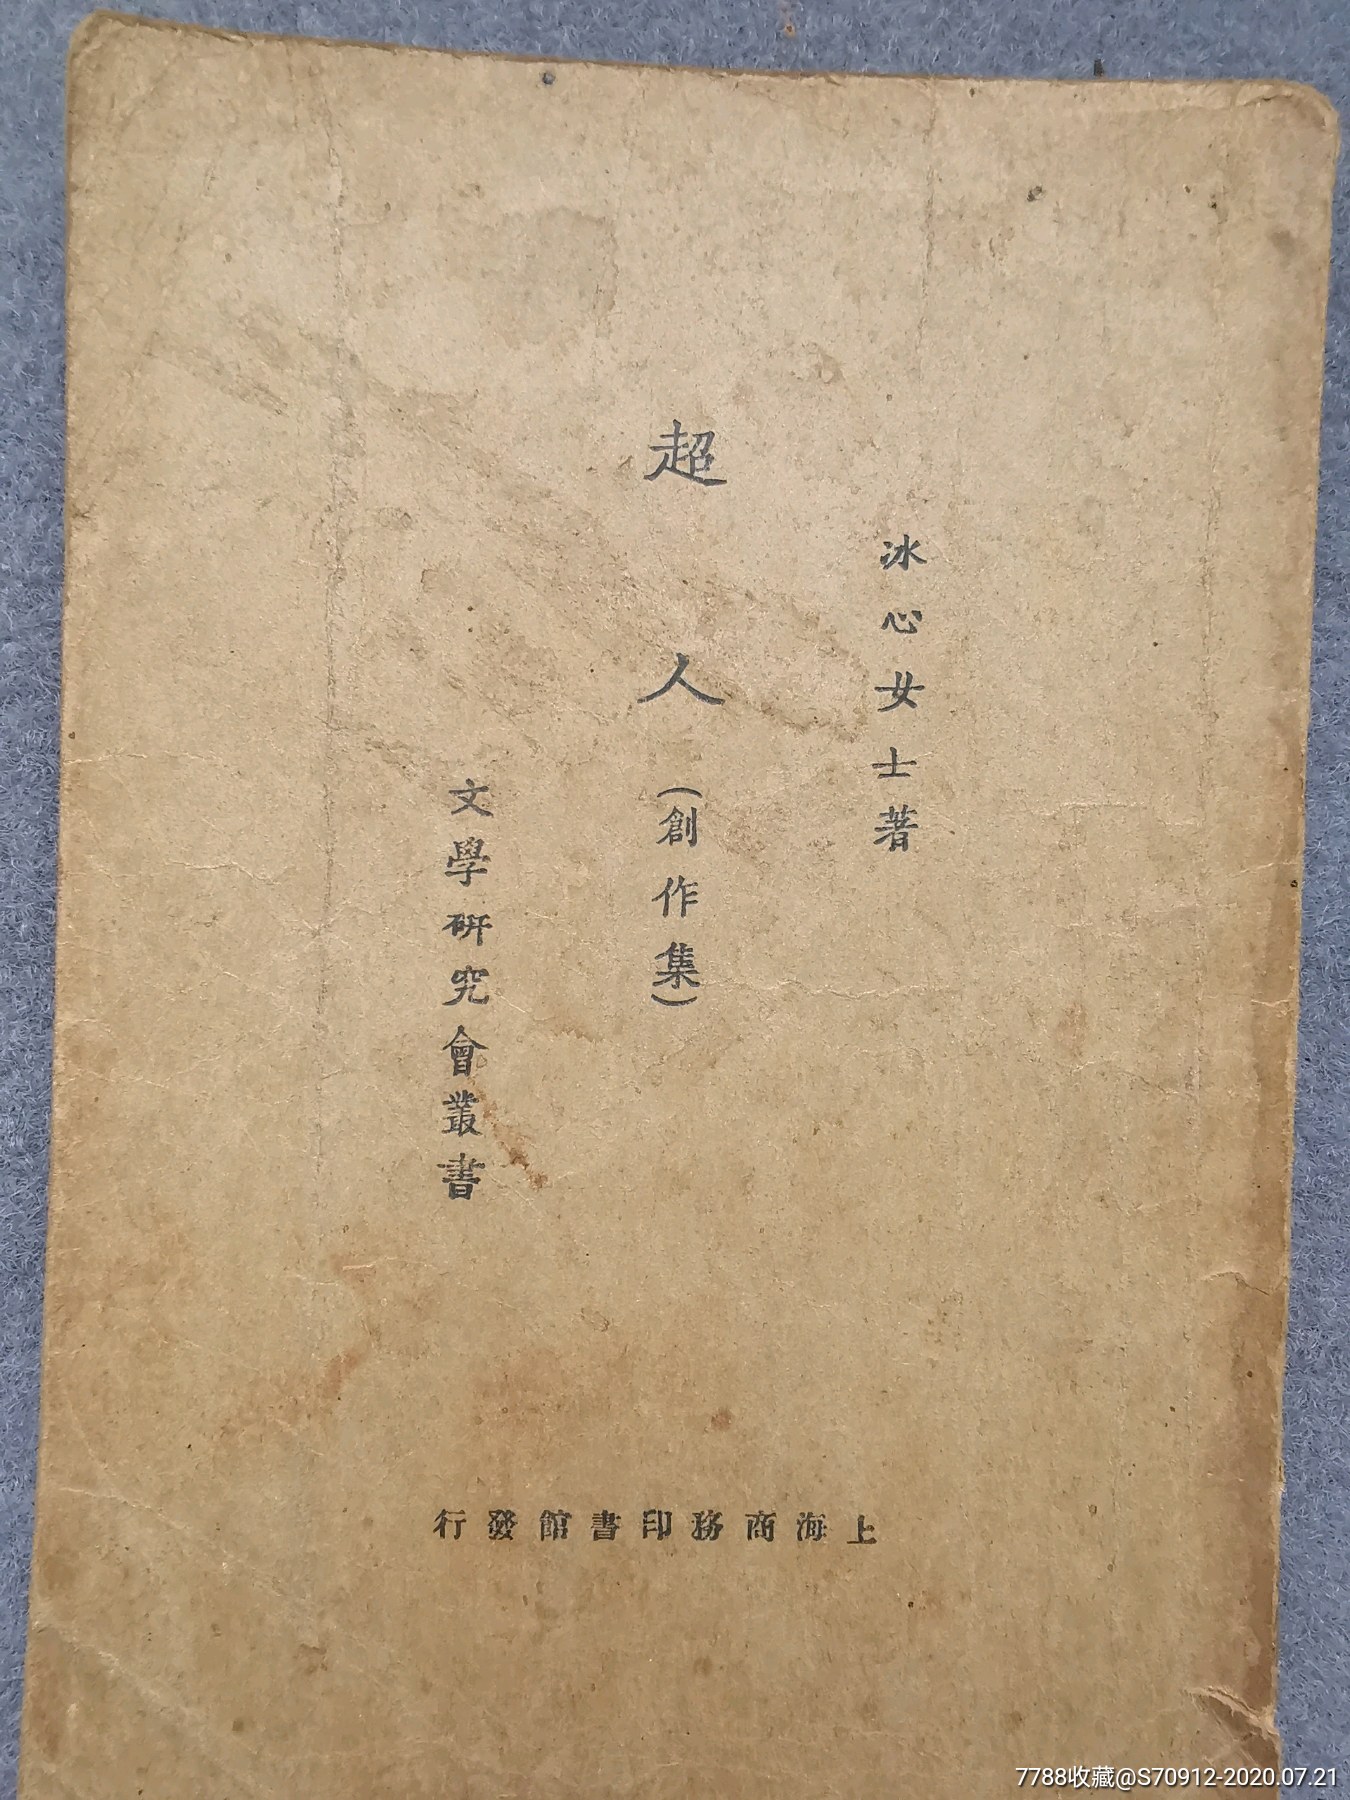 冰心女士著
超人(創作集)
文學研究會叢書
上海商務印書館發行
7788收藏@S70912-2020.07.21